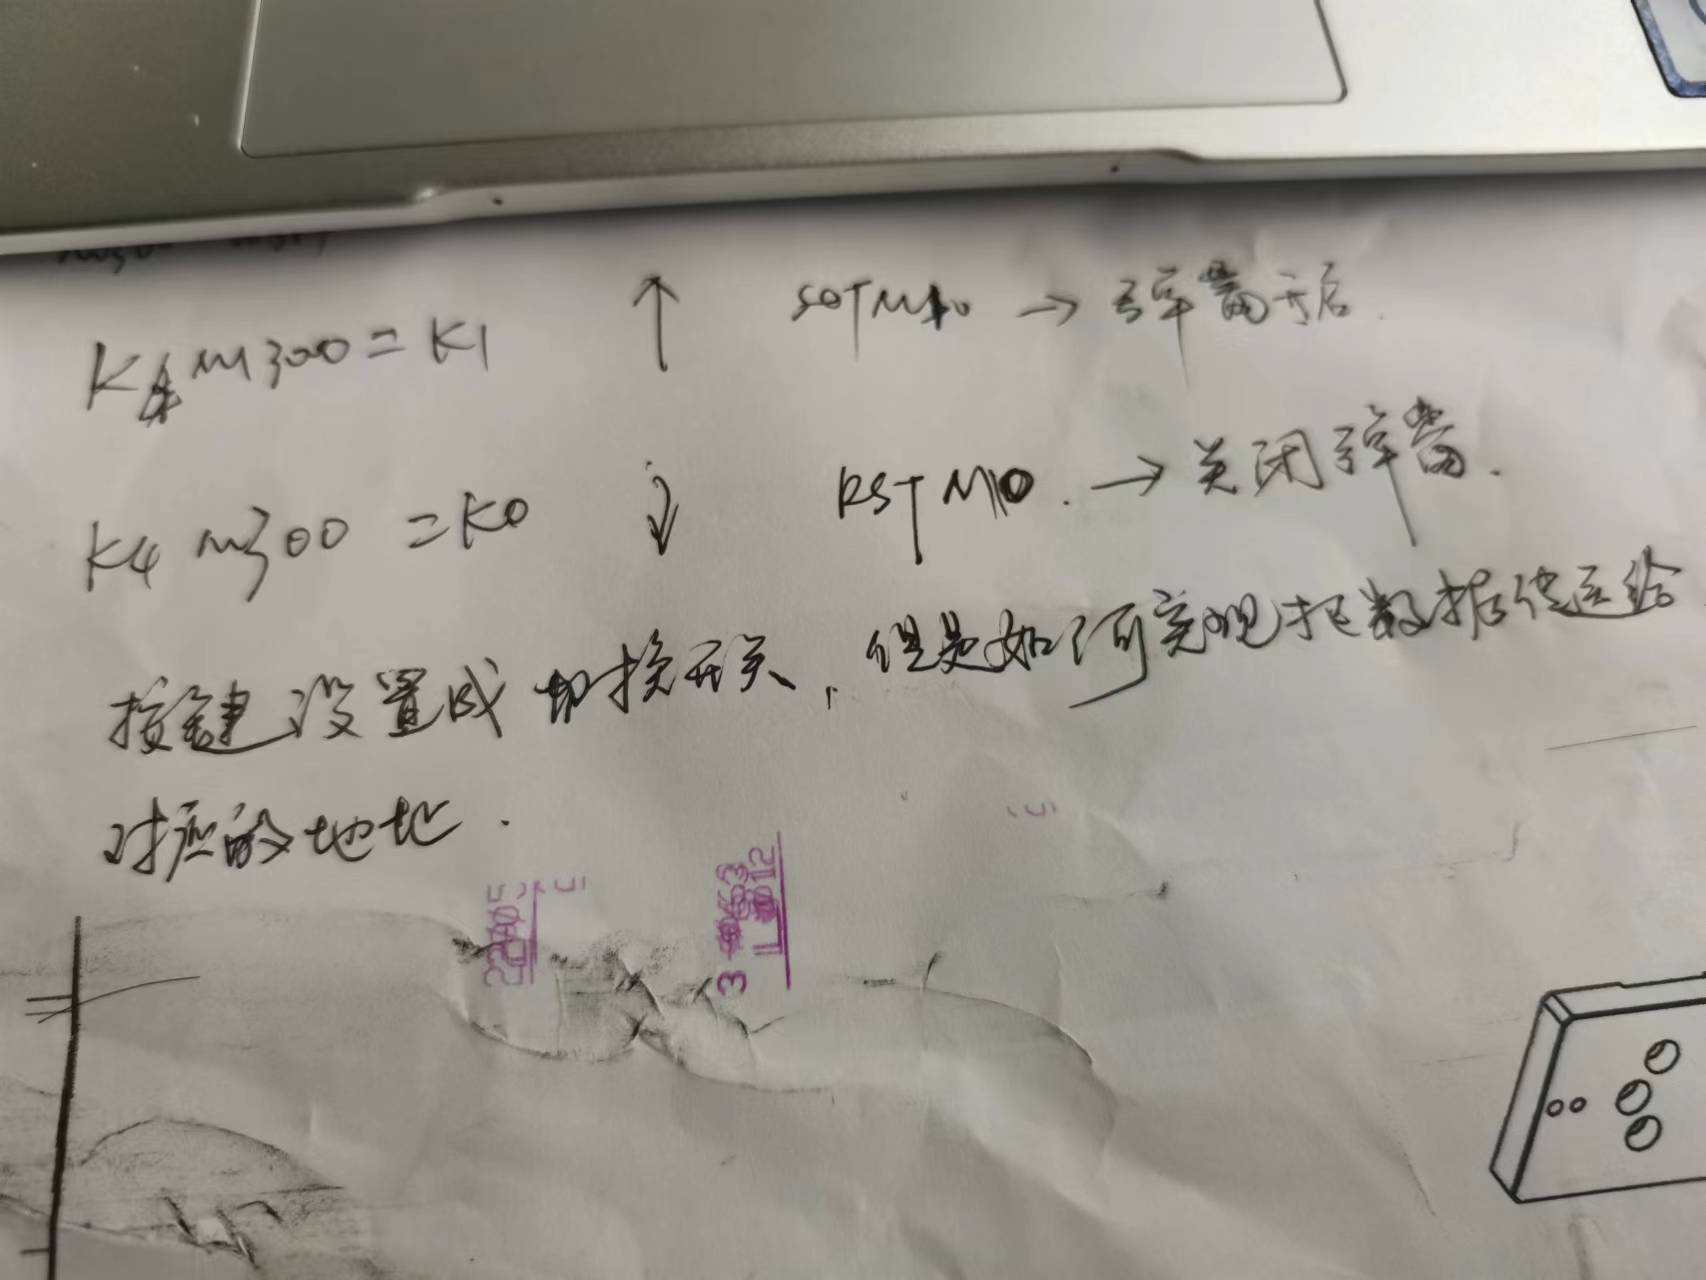 K4 M300=K1 ↑ SETM10 → 弹窗开启.
K4 M300 =K0 ↓ RST M10. → 关闭弹窗.
按键设置成切换开关, 但是如何实现把数据传送给
对应的地址.